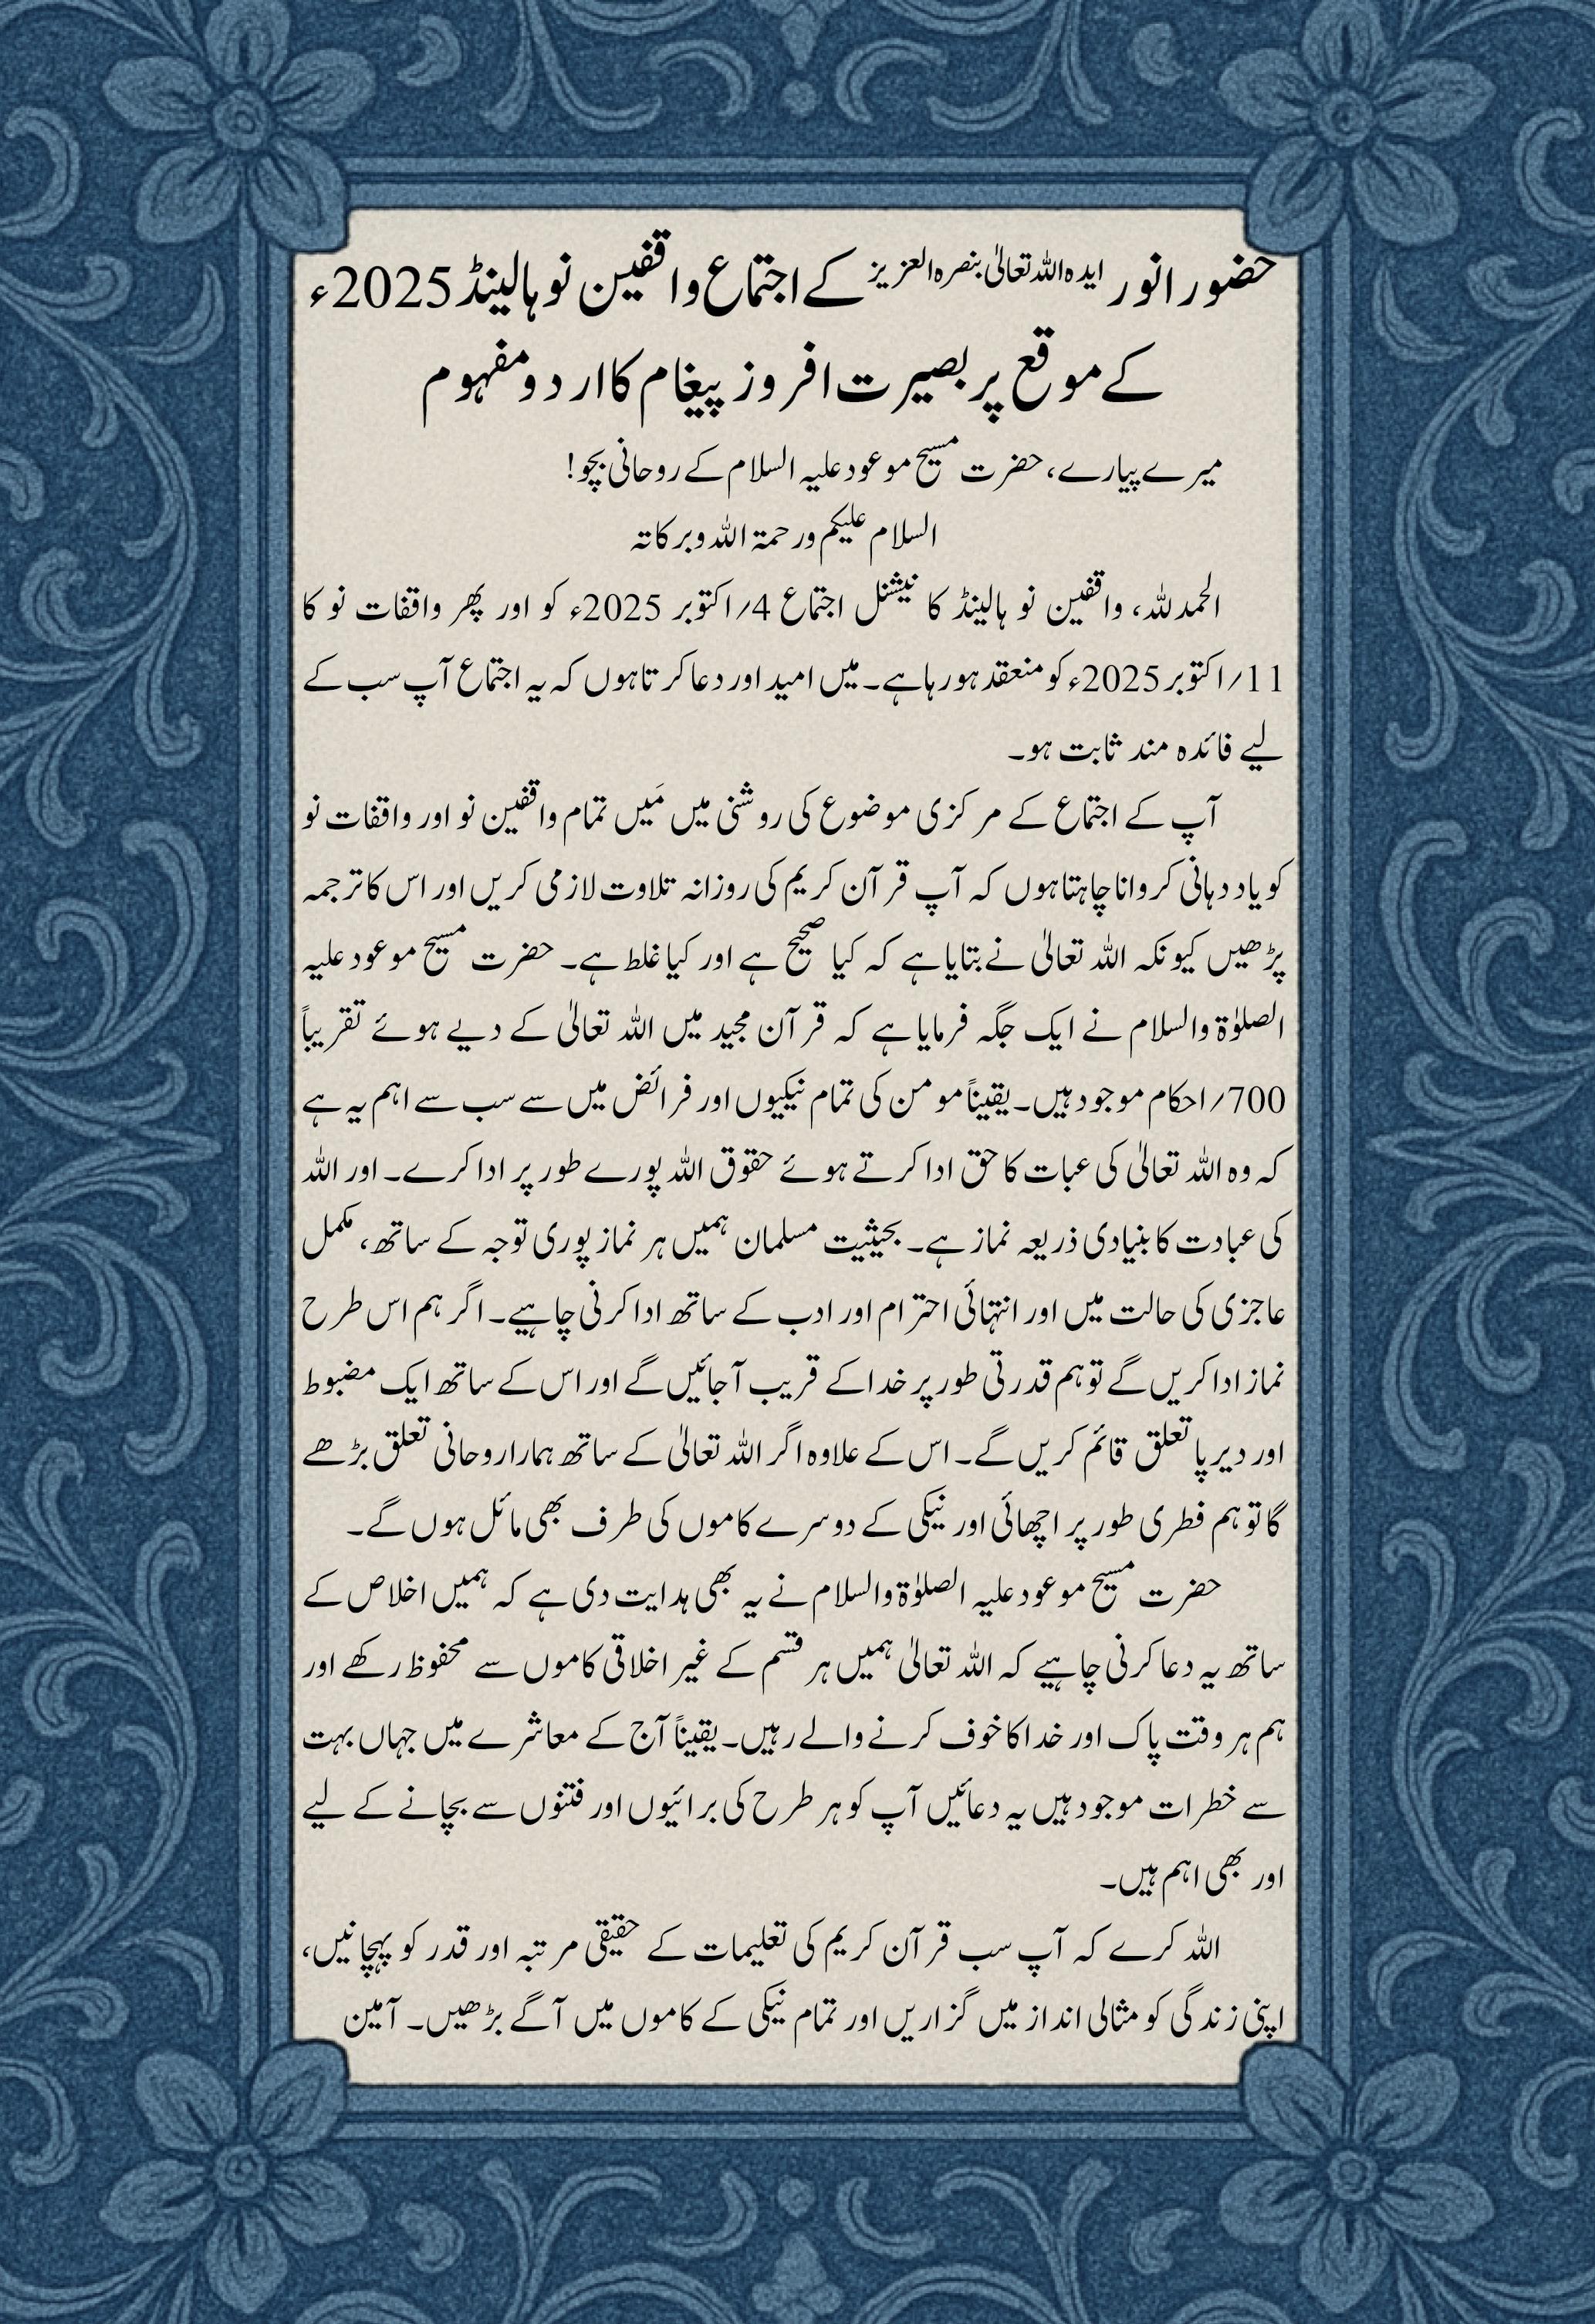 حضور انور ایدہ اللہ تعالیٰ بنصرہ العزیز کے اجتماع واقفین نو ہالینڈ 2025ء
کے موقع پر بصیرت افروز پیغام کا اردو مفہوم
میرے پیارے، حضرت مسیح موعود علیہ السلام کے روحانی بچو!
السلام علیکم ورحمۃ اللہ وبرکاتہ
الحمد للہ، واقفین نو ہالینڈ کا نیشنل اجتماع 4؍اکتوبر 2025ء کو اور پھر واقفات نو کا
11؍اکتوبر 2025ء کو منعقد ہو رہا ہے۔ میں امید اور دعا کرتا ہوں کہ یہ اجتماع آپ سب کے
لیے فائدہ مند ثابت ہو۔
آپ کے اجتماع کے مرکزی موضوع کی روشنی میں مَیں تمام واقفین نو اور واقفات نو
کو یاد دہانی کروانا چاہتا ہوں کہ آپ قرآن کریم کی روزانہ تلاوت لازمی کریں اور اس کا ترجمہ
پڑھیں کیونکہ اللہ تعالیٰ نے بتایا ہے کہ کیا صحیح ہے اور کیا غلط ہے۔ حضرت مسیح موعود علیہ
الصلوٰۃ والسلام نے ایک جگہ فرمایا ہے کہ قرآن مجید میں اللہ تعالیٰ کے دیے ہوئے تقریباً
700؍احکام موجود ہیں۔ یقیناً مومن کی تمام نیکیوں اور فرائض میں سے سب سے اہم یہ ہے
کہ وہ اللہ تعالیٰ کی عبات کا حق ادا کرتے ہوئے حقوق اللہ پورے طور پر ادا کرے۔ اور اللہ
کی عبادت کا بنیادی ذریعہ نماز ہے۔ بحیثیت مسلمان ہمیں ہر نماز پوری توجہ کے ساتھ، مکمل
عاجزی کی حالت میں اور انتہائی احترام اور ادب کے ساتھ ادا کرنی چاہیے۔ اگر ہم اس طرح
نماز ادا کریں گے تو ہم قدرتی طور پر خدا کے قریب آجائیں گے اور اس کے ساتھ ایک مضبوط
اور دیرپا تعلق قائم کریں گے۔ اس کے علاوہ اگر اللہ تعالیٰ کے ساتھ ہمارا روحانی تعلق بڑھے
گا تو ہم فطری طور پر اچھائی اور نیکی کے دوسرے کاموں کی طرف بھی مائل ہوں گے۔
حضرت مسیح موعود علیہ الصلوٰۃ والسلام نے یہ بھی ہدایت دی ہے کہ ہمیں اخلاص کے
ساتھ یہ دعا کرنی چاہیے کہ اللہ تعالیٰ ہمیں ہر قسم کے غیر اخلاقی کاموں سے محفوظ رکھے اور
ہم ہر وقت پاک اور خدا کا خوف کرنے والے رہیں۔ یقیناً آج کے معاشرے میں جہاں بہت
سے خطرات موجود ہیں یہ دعائیں آپ کو ہر طرح کی برائیوں اور فتنوں سے بچانے کے لیے
اور بھی اہم ہیں۔
اللہ کرے کہ آپ سب قرآن کریم کی تعلیمات کے حقیقی مرتبہ اور قدر کو پہچانیں،
اپنی زندگی کو مثالی انداز میں گزاریں اور تمام نیکی کے کاموں میں آگے بڑھیں۔ آمین